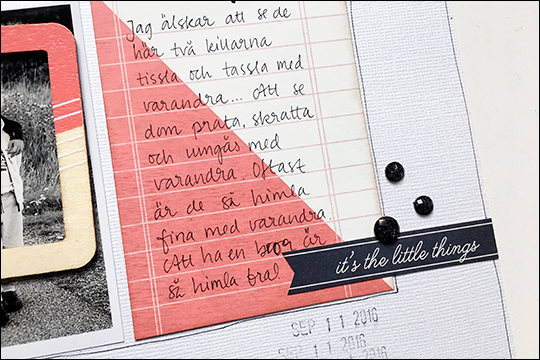 Jag älskar att se de
här två killarna
tissla och tassla med
varandra... Att se
dom prata, skratta
och umgås med
varandra. Oftast
är de så himla
fina med varandra.
Att ha en bror är
så himla bra!
it's the little things
SEP 11 2016
SEP 11 2016